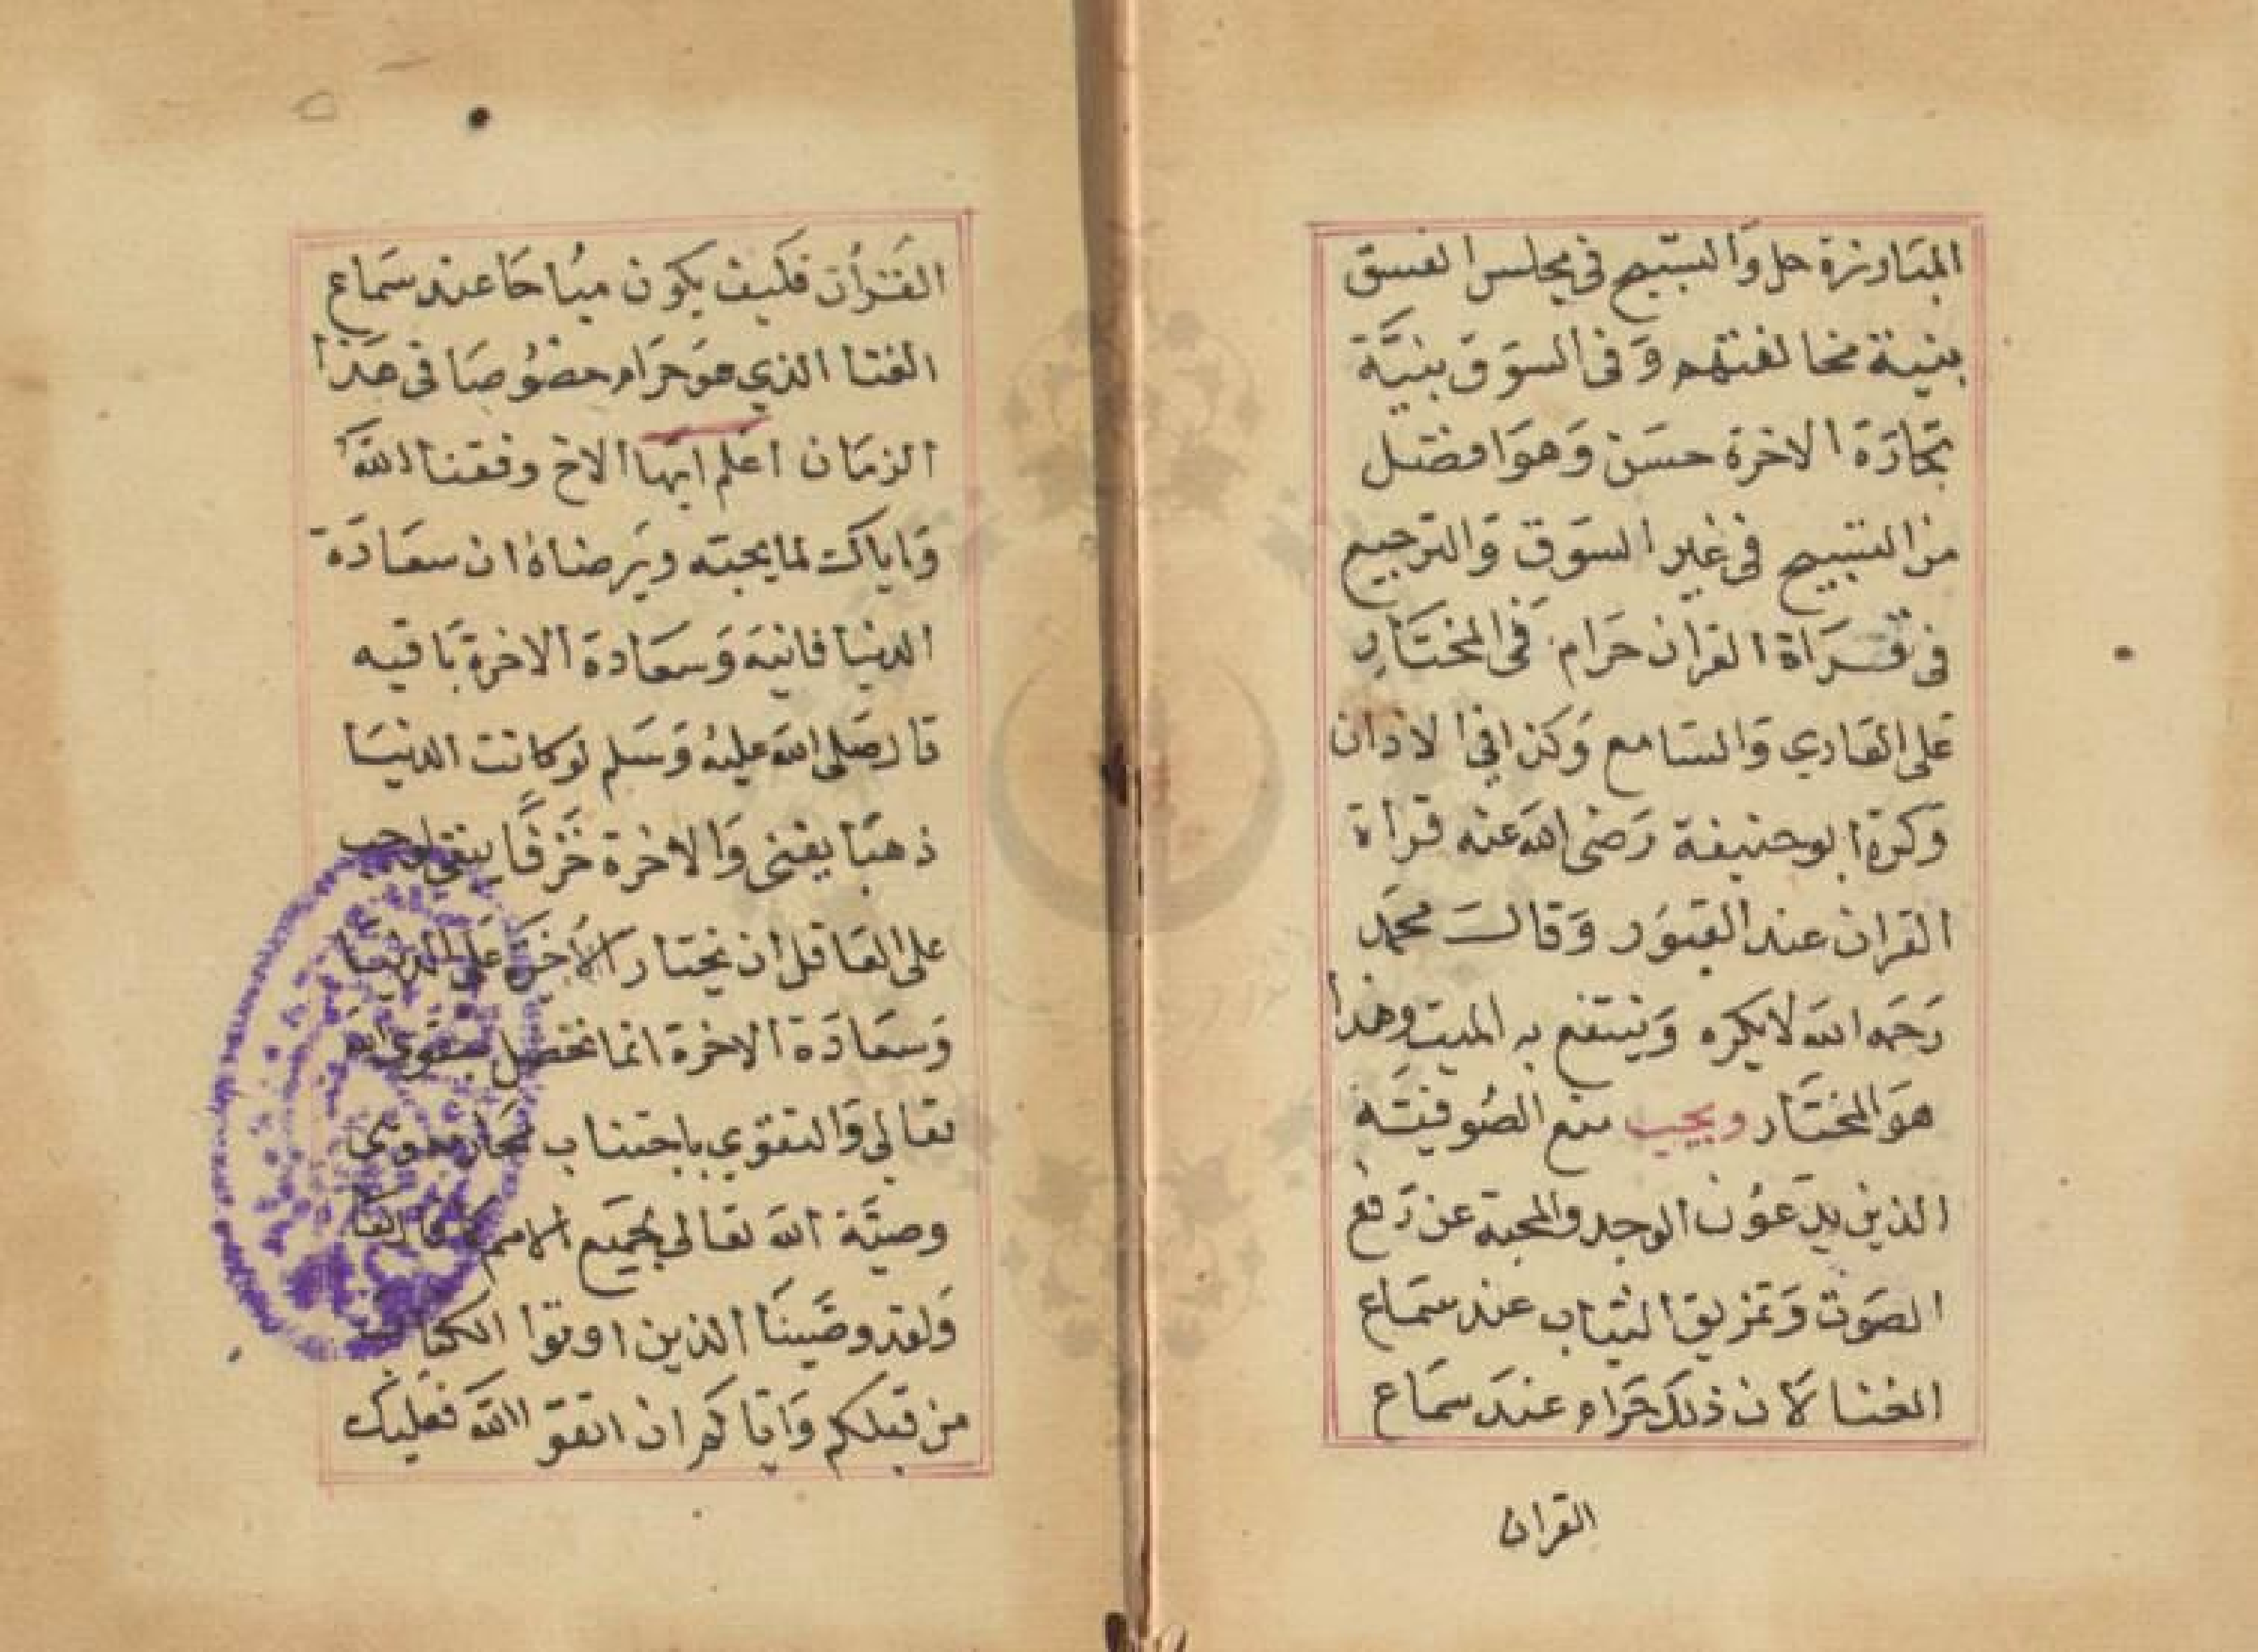 المبارزة حل والتسبيح في مجلس الفسق
بنية مخالفتهم وفي السوق بنية
تجارة الاخرة حسن وهو افضل
من التسبيح في غير السوق والترجيع
في قراة القران حرام في المختار
على القاري والسامع وكذا في الاذان
وكره ابو حنيفة رضى الله عنه قراة
القران عند القبور وقال محمد
رحمه الله لا يكره وينتفع به الميت وهذا
هو المختار ويجب منع الصوفية
الذين يدعون الوجد والمحبة عن رفع
الصوت وتمزيق الثياب عند سماع
الغنا لان ذلك حرام عند سماع
القران
القرأن فكيف يكون مباحا عند سماع
الغنا الذي هو حرام خصوصا في هذا
الزمان اعلم ايها الاخ وفقنا الله
واياك لما يحبه ويرضاه ان سعادة
الدنيا فانية وسعادة الاخرة باقيه
قال صلى الله عليه وسلم لو كانت الدنيا
ذهبا يفنى والاخرة خزفا يبقى لوجب
على العاقل ان يختار الأخرة على الدنيا
وسعادة الاخرة انما تحصل بتقوى الله
تعالي والتقوي باجتناب محارمه وهى
وصية الله تعالى لجميع الامم كما قال
ولقد وصينا الذين اوتوا الكتاب
من قبلكم واياكم ان اتقوا الله فعليك